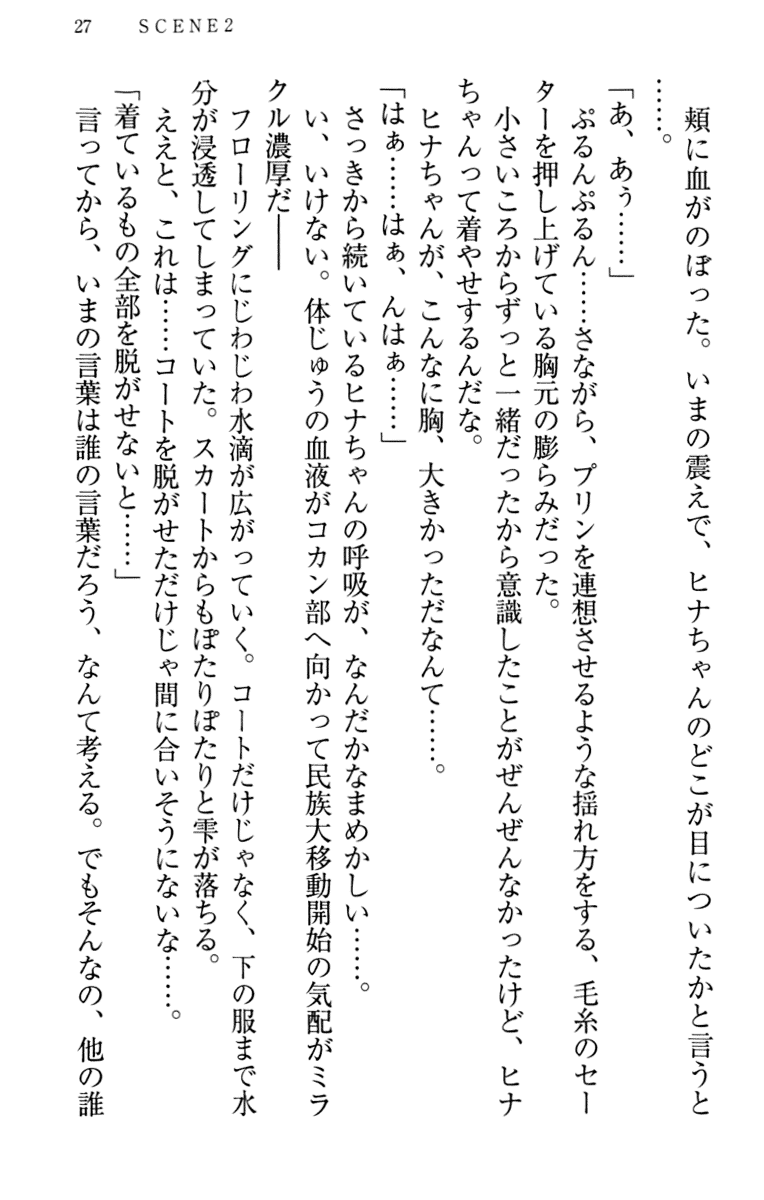 27　SCENE2
頬に血がのぼった。いまの震えで、ヒナちゃんのどこが目についたかと言うと
……。
「あ、あぅ……」
ぷるんぷるん……さながら、プリンを連想させるような揺れ方をする、毛糸のセー
ターを押し上げている胸元の膨らみだった。
小さいころからずっと一緒だったから意識したことがぜんぜんなかったけど、ヒナ
ちゃんって着やせするんだな。
ヒナちゃんが、こんなに胸、大きかっただなんて……。
「はぁ……はぁ、んはぁ……」
さっきから続いているヒナちゃんの呼吸が、なんだかなまめかしい……。
い、いけない。体じゅうの血液がコカン部へ向かって民族大移動開始の気配がミラ
クル濃厚だ――
フローリングにじわじわ水滴が広がっていく。コートだけじゃなく、下の服まで水
分が浸透してしまっていた。スカートからもぽたりぽたりと雫が落ちる。
ええと、これは……コートを脱がせただけじゃ間に合いそうにないな……。
「着ているもの全部を脱がせないと……」
言ってから、いまの言葉は誰の言葉だろう、なんて考える。でもそんなの、他の誰